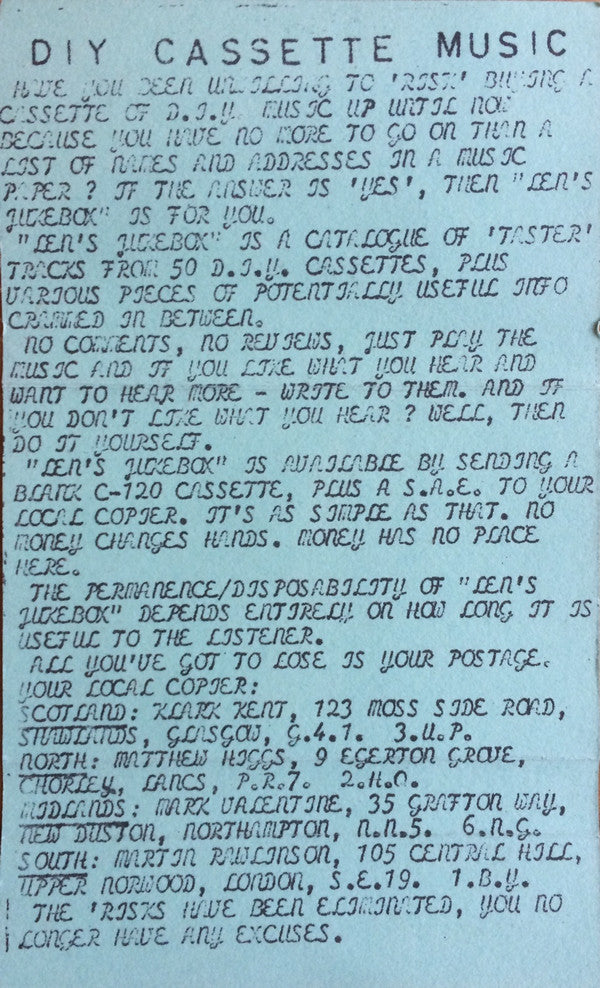 DIY CASSETTE MUSIC
HAVE YOU BEEN UNWILLING TO 'RISK' BUYING A
CASSETTE OF D.I.Y. MUSIC UP UNTIL NOW
BECAUSE YOU HAVE NO MORE TO GO ON THAN A
LIST OF NAMES AND ADDRESSES IN A MUSIC
PAPER ? IF THE ANSWER IS 'YES', THEN "LEN'S
JUKEBOX" IS FOR YOU.
"LEN'S JUKEBOX" IS A CATALOGUE OF 'TASTER'
TRACKS FROM 50 D.I.Y. CASSETTES, PLUS
VARIOUS PIECES OF POTENTIALLY USEFUL INFO
CRAMMED IN BETWEEN.
NO COMMENTS, NO REVIEWS, JUST PLAY THE
MUSIC AND IF YOU LIKE WHAT YOU HEAR AND
WANT TO HEAR MORE - WRITE TO THEM. AND IF
YOU DON'T LIKE WHAT YOU HEAR ? WELL, THEN
DO IT YOURSELF.
"LEN'S JUKEBOX" IS AVAILABLE BY SENDING A
BLANK C-120 CASSETTE, PLUS A S.A.E. TO YOUR
LOCAL COPIER. IT'S AS SIMPLE AS THAT. NO
MONEY CHANGES HANDS. MONEY HAS NO PLACE
HERE.
THE PERMANENCE/DISPOSABILITY OF "LEN'S
JUKEBOX" DEPENDS ENTIRELY ON HOW LONG IT IS
USEFUL TO THE LISTENER.
ALL YOU'VE GOT TO LOSE IS YOUR POSTAGE.
YOUR LOCAL COPIER:
SCOTLAND: KLARK KENT, 123 MOSS SIDE ROAD,
SHAWLANDS, GLASGOW, G.4.1. 3.U.P.
NORTH: MATTHEW HIGGS, 9 EGERTON GROVE,
CHORLEY, LANCS, P.R.7. 2.H.O.
MIDLANDS: MARK VALENTINE, 35 GRAFTON WAY,
NEW DUSTON, NORTHAMPTON, N.N.5. 6.N.G.
SOUTH: MARTIN RAWLINSON, 105 CENTRAL HILL,
UPPER NORWOOD, LONDON, S.E.19. 1.B.Y.
THE 'RISKS HAVE BEEN ELIMINATED, YOU NO
LONGER HAVE ANY EXCUSES.